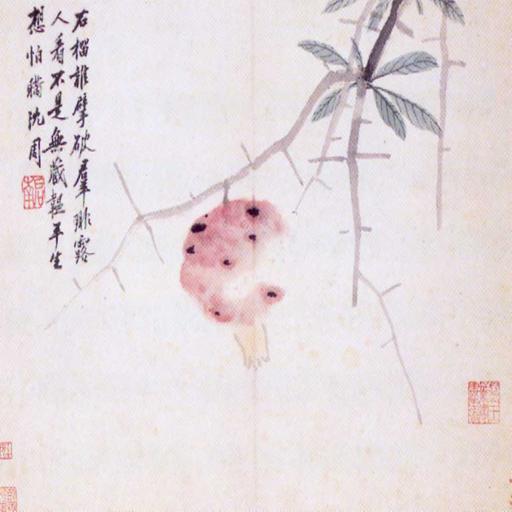 石榴誰擘破羣琲露
人看不是無藏韞平生
想怕瞞沈周